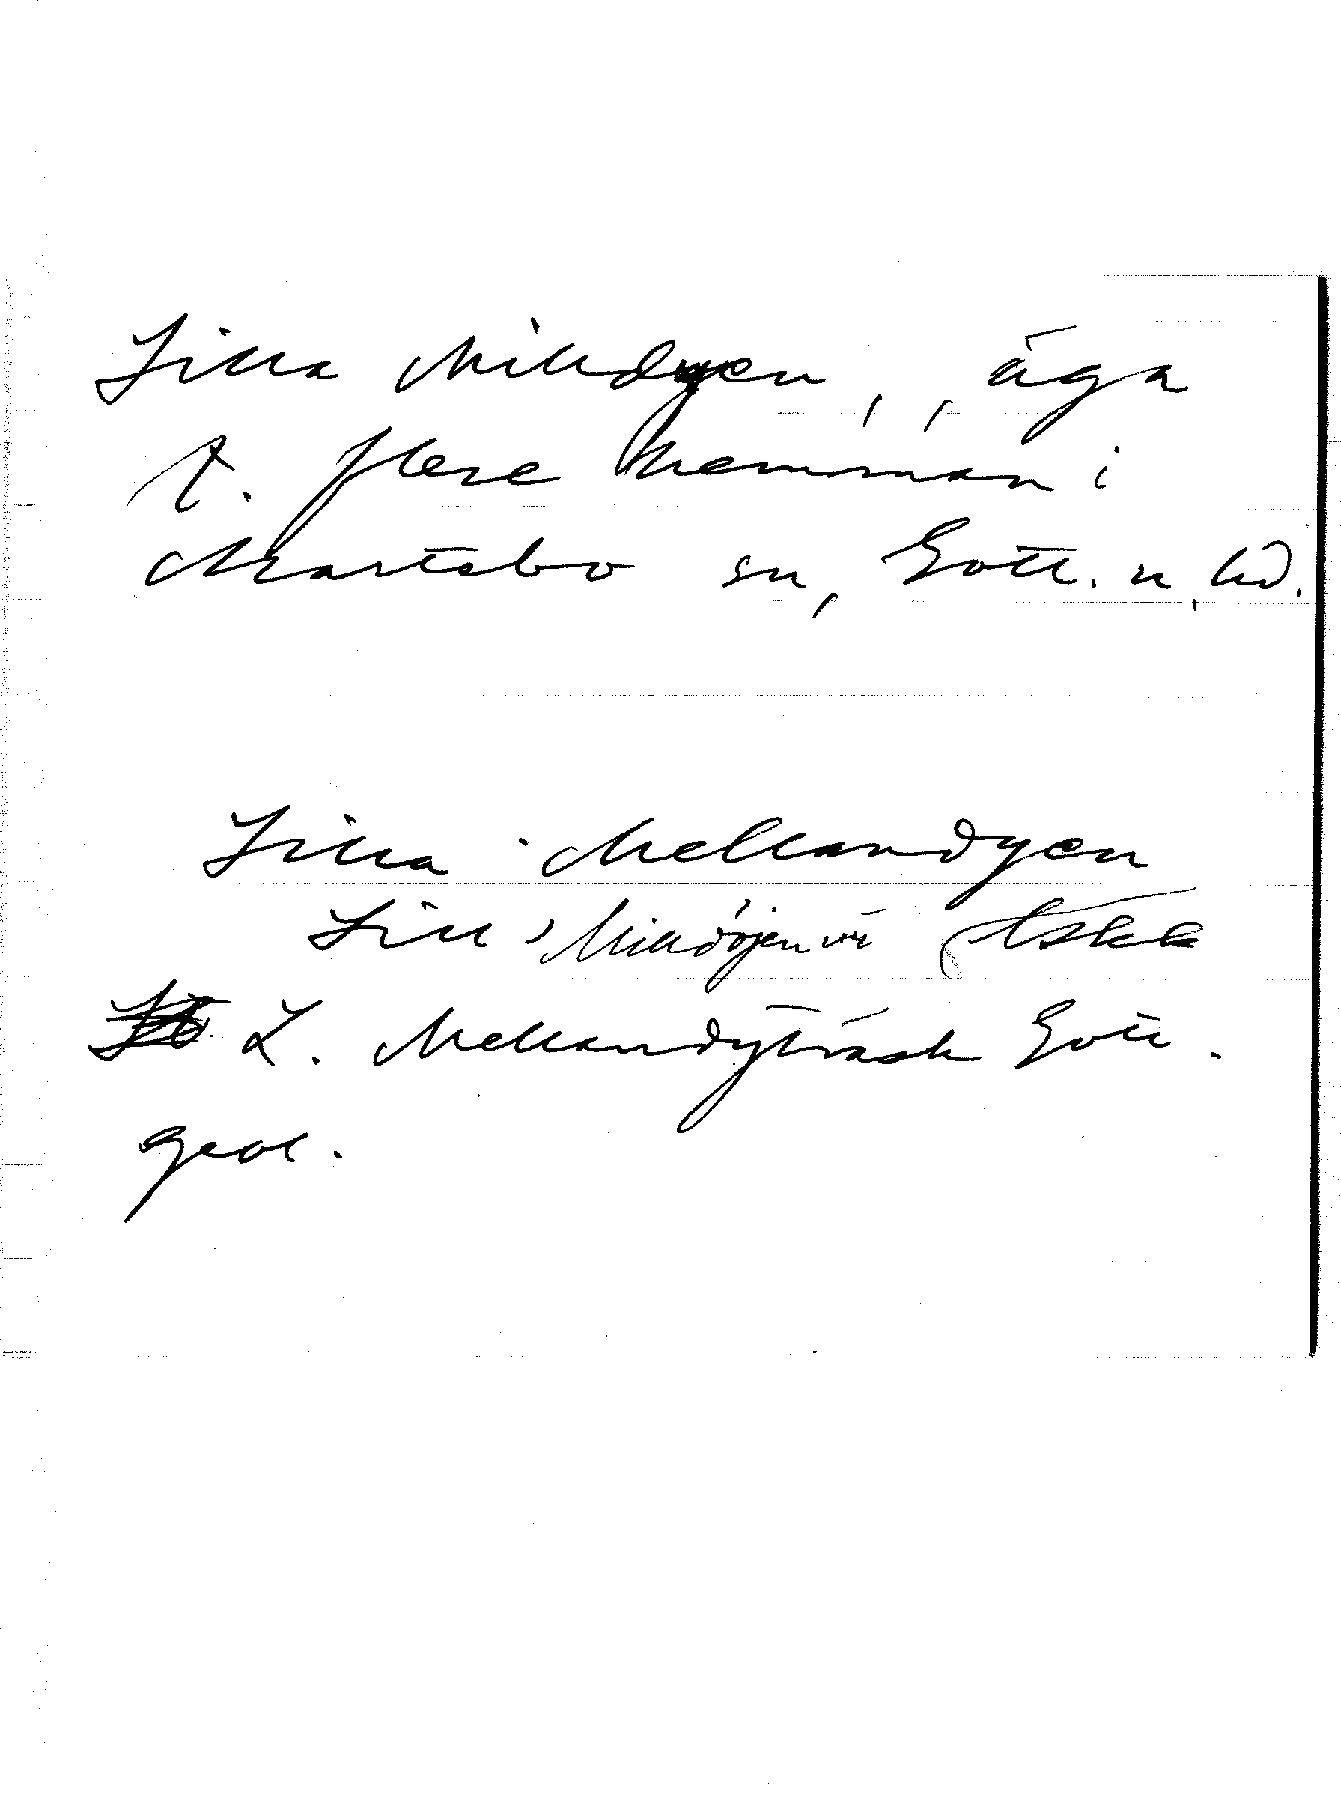 Lilla Milldyen, , äga
t. flere hemman i
Martebo sn, Gotl. n, hd.
Lilla Mellandyen
Lill Milldöjen
L. Mellandyträsk Gotl.
geol.